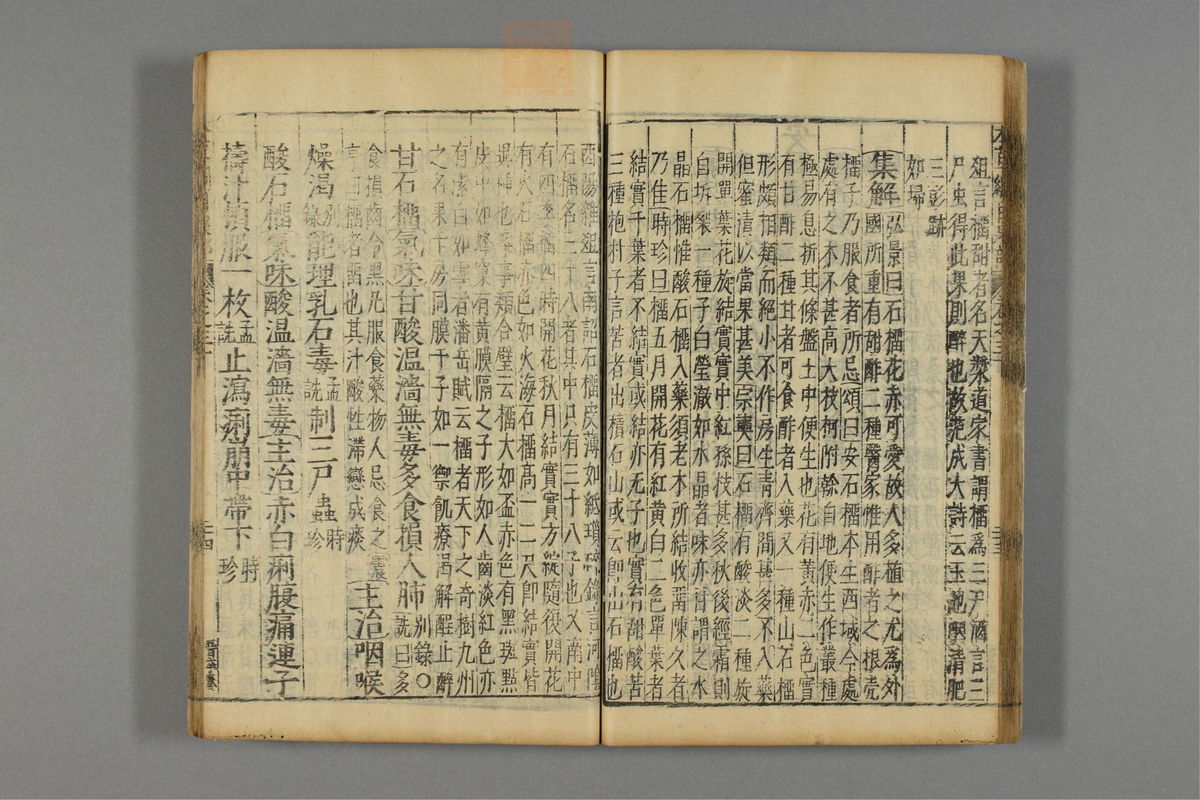 俎言榴甜者名天漿道家書謂榴爲三尸酒言三
尸虫得此果則醉也故范成大詩云玉池咽清肥
三彭跡
如掃
集解 弘景曰石榴花赤可愛故人多植之尤爲外
國所重有甜酢二種醫家惟用酢者之根壳
榴子乃服食者所忌頌曰安石榴本生西域今處
處有之木不甚高大枝柯附榦自地便生作叢種
極易息折其條盤土中便生也花有黄赤二色實
有甘酢二種甘者可食酢者入藥又一種山石榴
形頗相類而絕小不作房生青齊間甚多不入藥
但蜜漬以當果甚美宗奭曰石榴有酸淡二種旋
開單葉花旋結實實中紅孫枝甚多秋後經霜則
自坼裂一種子白瑩澈如水晶者味亦甘謂之水
晶石榴惟酸石榴入藥須老木所結收畱陳久者
乃佳時珍曰榴五月開花有紅黄白三色單葉者
結實千葉者不結實或結亦无子也實有甜酸苦
三種抱朴子言苦者出積石山或云即山石榴也
酉陽雜俎言南詔石榴皮薄如紙瑣碎錄言河陰
石榴名三十八者其中只有三十八子也又南中
有四季榴四時開花秋月結實實方綻隨復開花
有火石榴赤色如火海石榴高一二尺即結實皆
異種也案事類合璧云榴大如盃赤色有黑斑點
皮中如蜂窠有黄膜隔之子形如人齒淡紅色亦
有潔白如雪者潘岳賦云榴者天下之奇樹九州
之名果千房同膜千子如一禦飢療渴解酲止醉
甘石榴氣味甘酸温濇無毒多食損人肺 别錄○
詵曰多
食損齒令黑凡服食藥物人忌食之震
亨曰榴者畱也其汁酸性滯戀成痰 主治咽喉
燥渴 别錄 能理乳石毒 孟詵 制三尸蟲 時珍
酸石榴氣味酸温濇無毒主治赤白痢腹痛連子
擣汁頓服一枚 孟詵 止瀉痢崩中帶下 時珍